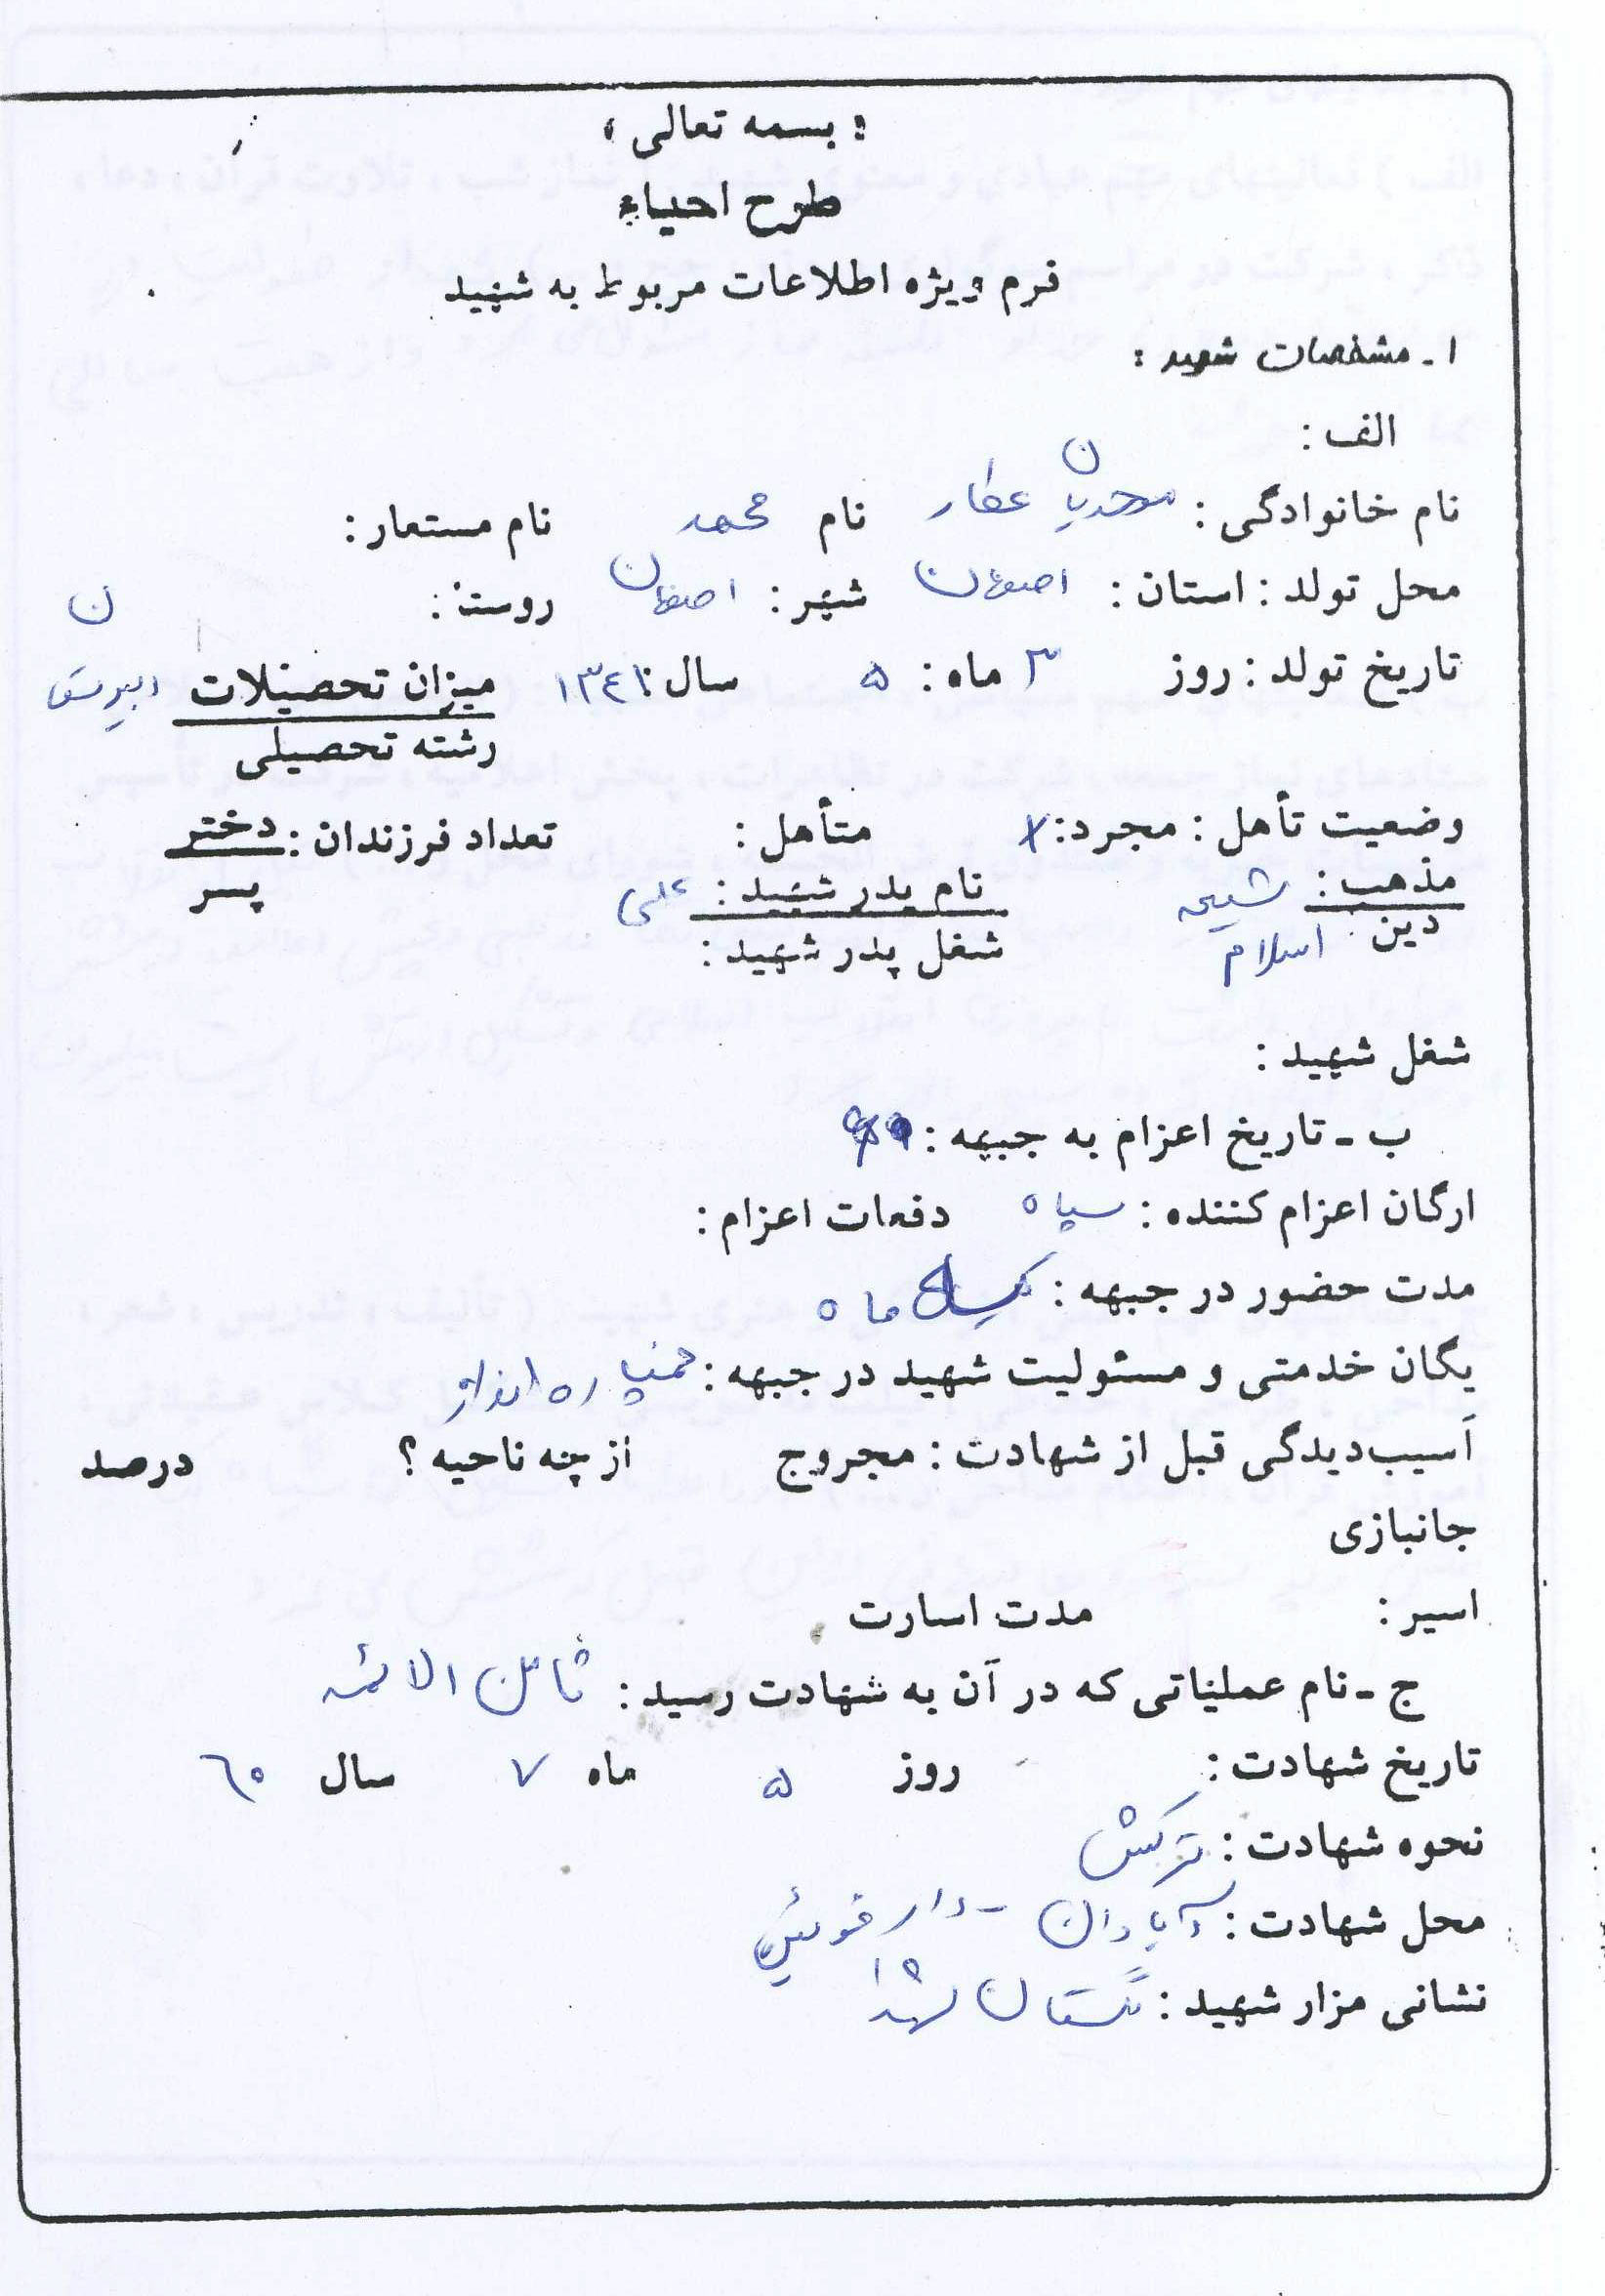 « بسمه تعالی »
طرح احیاء
فرم ویژه اطلاعات مربوط به شهید
۱ـ مشخصات شهید :
الف :
نام خانوادگی : عطار نام محمد نام مستعار :
محل تولد : استان : اصفهان شهر : اصفهان روستا :
تاریخ تولد : روز ۳ ماه : ۵ سال : میزان تحصیلات دبیرستان
رشته تحصیلی
وضعیت تأهل : مجرد : x متأهل : تعداد فرزندان : دختر
پسر
مذهب : شیعه نام پدر شهید : علی
دین اسلام شغل پدر شهید :
شغل شهید :
ب ـ تاریخ اعزام به جبهه :
ارگان اعزام کننده : سپاه دفعات اعزام :
مدت حضور در جبهه : ماه
یگان خدمتی و مسئولیت شهید در جبهه : خمپاره انداز
آسیب‌دیدگی قبل از شهادت : مجروح از چه ناحیه ؟ درصد
جانبازی
اسیر : مدت اسارت
ج ـ نام عملیاتی که در آن به شهادت رسید : ثامن الائمه
تاریخ شهادت : روز ۵ ماه ۷ سال ۶۰
نحوه شهادت : ترکش
محل شهادت : آبادان - دارخوئین
نشانی مزار شهید : گلستان شهدا